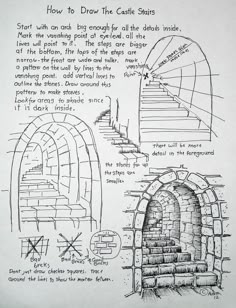 How to Draw The Castle Stairs
Start with an arch big enough for all the details inside.
Mark the vanishing point at eye level, all the
lines will point to it. The steps are bigger
at the bottom, the tops of the steps are
narrow - the front are wider and taller. Make
a pattern on the wall by lines to the
vanishing point. add vertical lines to
outline the stones. Draw around this
pattern to make stones.
Look for areas to shade since
it is dark inside.
mark
vanishing
Point
there will be more
detail in the foreground
the stones far up
the steps are
Smaller
Bad
bricks
Bad
bricks
Good
bricks
Dont just draw checker squares. Trace
around the lines to show the mortar between.